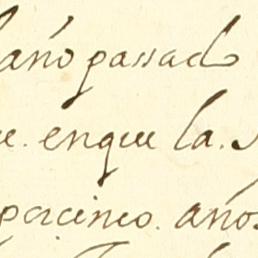 año passad
e. en que la. S
por cinco. años